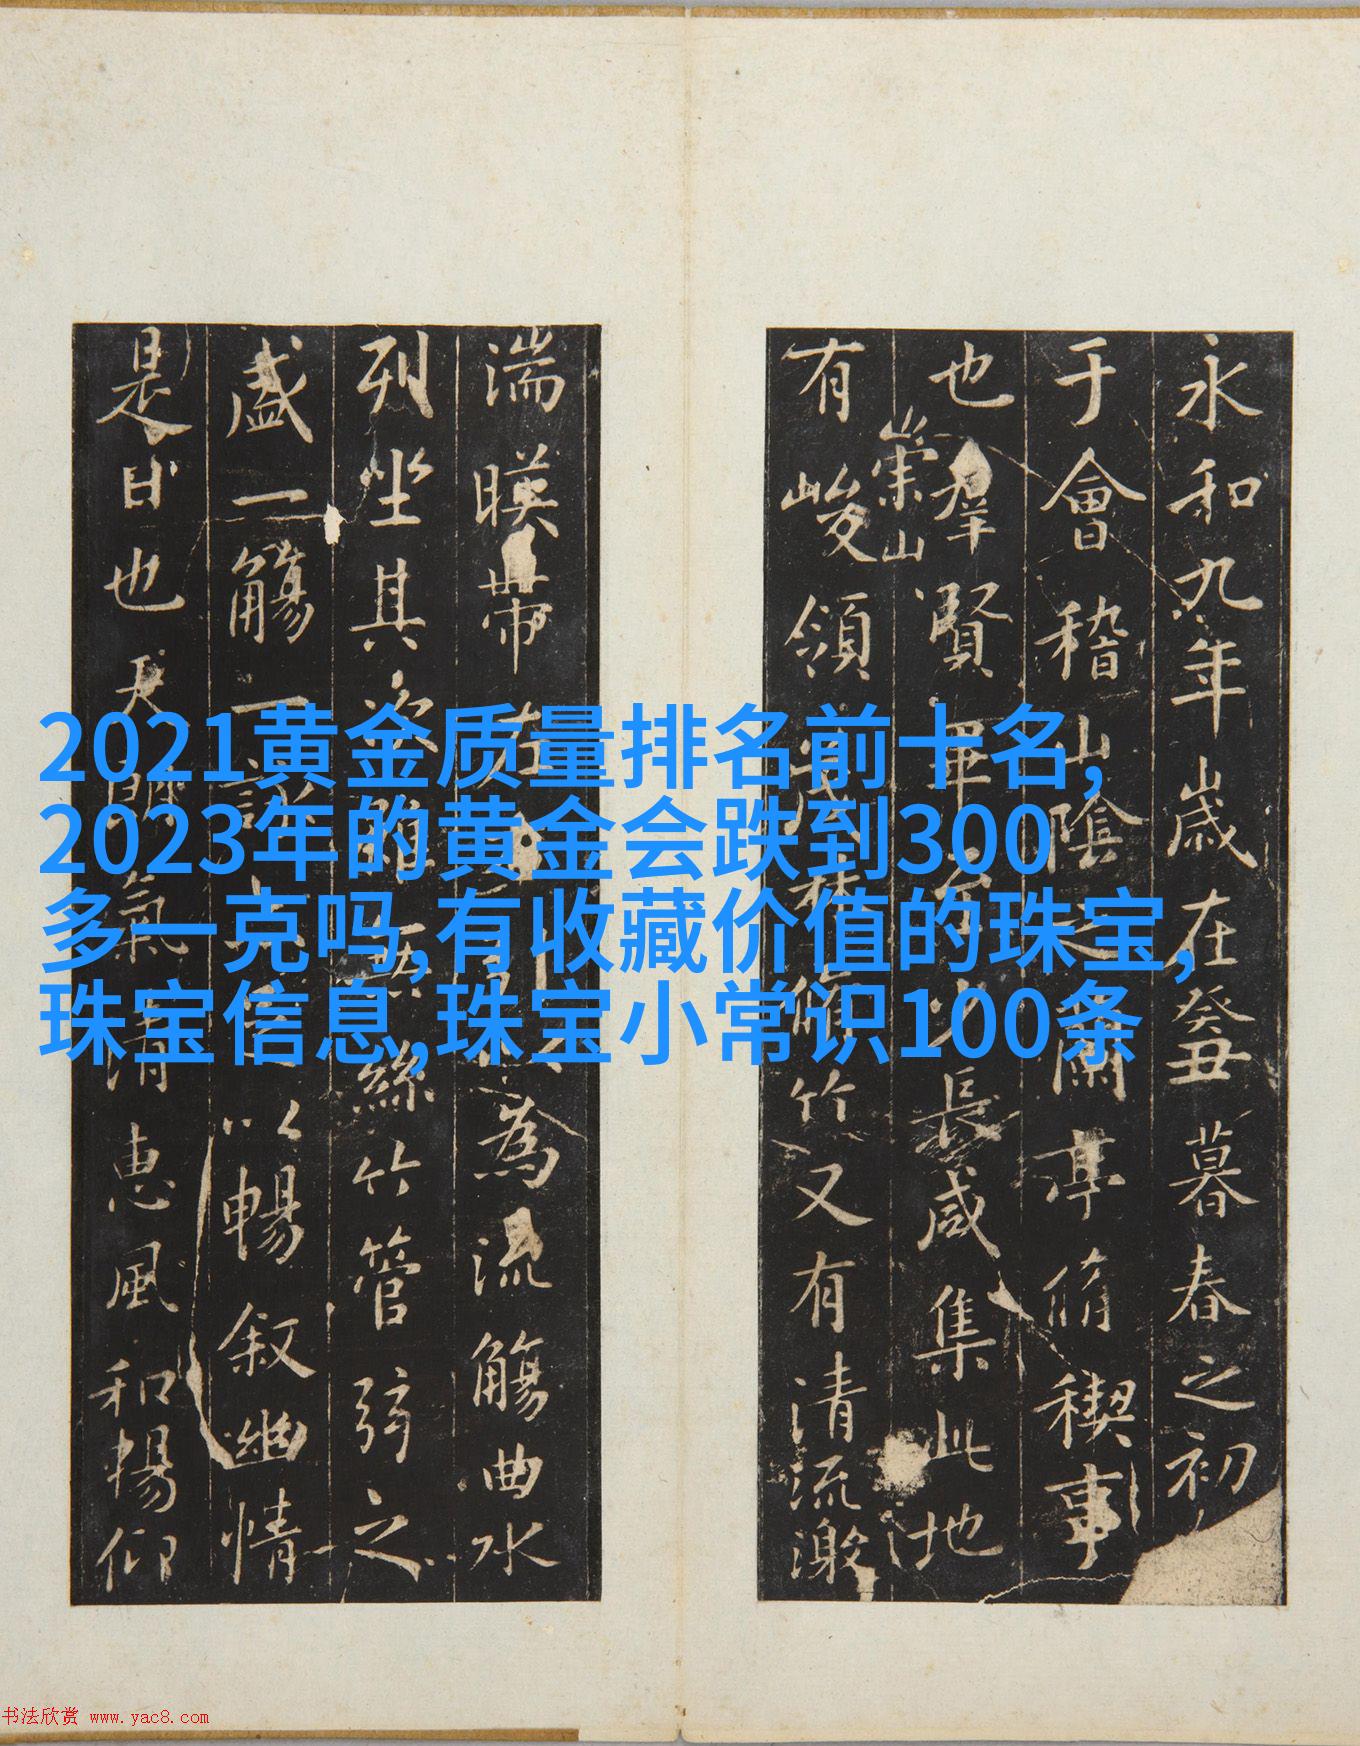 2021黄金质量排名前十名,
2023年的黄金会跌到300
多一克吗,有收藏价值的珠宝,
珠宝信息,珠宝小常识100条
永和九年歲在癸丑暮春之初
于會稽山陰之蘭亭脩禊事
也羣賢畢至少長咸集此地
崇山
有峻領茂林脩竹又有清流激
湍暎帶左右引以為流觴曲水
列坐其次雖無絲竹管弦之
盛一觴一詠亦足以暢叙幽情
是日也天朗氣清惠風和暢仰
书法欣赏 www.yac8.com